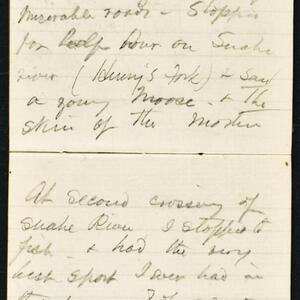 miserable roads - Stopped
for half hour on Snake
river (Henry's Fork) & saw
a young Moose - & The
skin of The
At second crossing of
Snake River I stopped to
fish - & had the very
best sport I ever had in